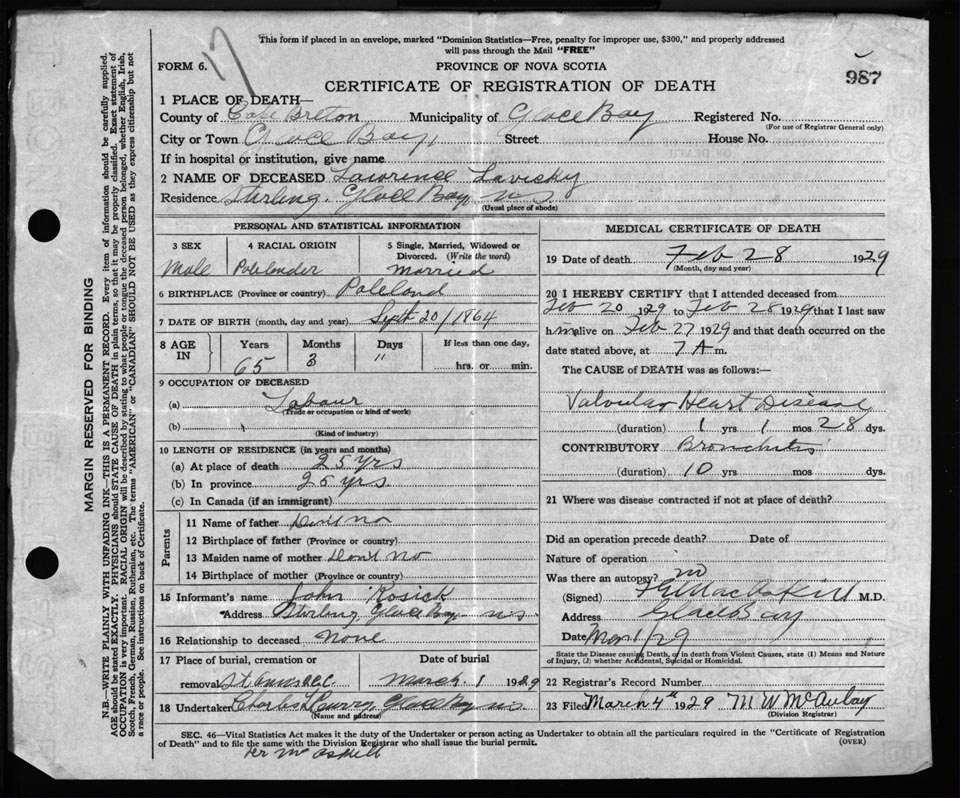 17
This form if placed in an envelope, marked "Dominion Statistics—Free, penalty for improper use, $300," and properly addressed
will pass through the Mail "FREE"
FORM 6.
PROVINCE OF NOVA SCOTIA
987
CERTIFICATE OF REGISTRATION OF DEATH
1 PLACE OF DEATH—
County of Cape Breton Municipality of Glace Bay Registered No.
(For use of Registrar General only)
City or Town Glace Bay, Street House No.
If in hospital or institution, give name
2 NAME OF DECEASED Lawrence Lavicky
Residence Sterling. Glace Bay N.S.
(Usual place of abode)
PERSONAL AND STATISTICAL INFORMATION
3 SEX
Male
4 RACIAL ORIGIN
Polelander
5 Single, Married, Widowed or
Divorced. (Write the word)
Married
6 BIRTHPLACE (Province or country) Poleland
7 DATE OF BIRTH (month, day and year) Sept 20/1864
8 AGE IN
Years Months Days If less than one day,
65 3 " hrs. or min.
9 OCCUPATION OF DECEASED
(a) Labour
(Trade or occupation or kind of work)
(b)
(Kind of industry)
10 LENGTH OF RESIDENCE (in years and months)
(a) At place of death 25 yrs
(b) In province 25 yrs
(c) In Canada (if an immigrant)
Parents
11 Name of father Dont no
12 Birthplace of father (Province or country)
13 Maiden name of mother Dont no
14 Birthplace of mother (Province or country)
15 Informant's name John Kosick
Address Sterling Glace Bay N.S.
16 Relationship to deceased None
17 Place of burial, cremation or Date of burial
removal St Anns March 1 1929
18 Undertaker Charles Curry, Glace Bay N.S.
(Name and address)
per McAskill
MEDICAL CERTIFICATE OF DEATH
19 Date of death Feb 28 1929
(Month, day and year)
20 I HEREBY CERTIFY that I attended deceased from
Feb 20 1929 to Feb 28 1929 that I last saw
him alive on Feb 27 1929 and that death occurred on the
date stated above, at 7 A m.
The CAUSE of DEATH was as follows:—
Valvular Heart Disease
(duration) 1 yrs 1 mos 28 dys.
CONTRIBUTORY Bronchitis
(duration) 10 yrs mos dys.
21 Where was disease contracted if not at place of death?
Did an operation precede death? Date of
Nature of operation
Was there an autopsy? no
(Signed) MacAskill M.D.
Address Glace Bay
Date Mar 1/29
State the Disease causing Death, or in death from Violent Causes, state (1) Means and Nature
of Injury, (2) whether Accidental, Suicidal or Homicidal.
22 Registrar's Record Number
23 Filed March 4th 1929 M W McAulay
(Division Registrar)
SEC. 46—Vital Statistics Act makes it the duty of the Undertaker or person acting as Undertaker to obtain all the particulars required in the "Certificate of Registration
of Death" and to file the same with the Division Registrar who shall issue the burial permit. (OVER)
MARGIN RESERVED FOR BINDING
N.B.—WRITE PLAINLY WITH UNFADING INK—THIS IS A PERMANENT RECORD. Every item of information should be carefully supplied.
AGE should be stated EXACTLY. PHYSICIANS should STATE CAUSE OF DEATH in plain terms, so that it may be properly classified. Exact statement of
OCCUPATION is very important. RACIAL ORIGIN will be described by stating to what people or tongue the deceased person belonged, whether English, Irish,
Scotch, French, German, Russian, Ruthenian, etc. The terms "AMERICAN" or "CANADIAN" SHOULD NOT BE USED as they express citizenship but not
a race or people. See instructions on back of Certificate.